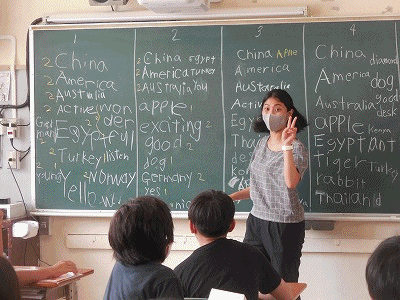 1
2 China
2 America
2 Australia
2 Active won
2 der
Ger
man
Egypt full
Turkey listen
young
2 Norway
Yellow
2
2 China Egypt
2 America Turkey
2 Australia You
apple 1
exciting 2
good 2
dog 1
Germany 2
yes 1
3
China Apple
America
Australia
4
China diamond
America dog
Australia good
desk
apple Kenya
Egypt ant
tiger Turkey
rabbit
Thailand